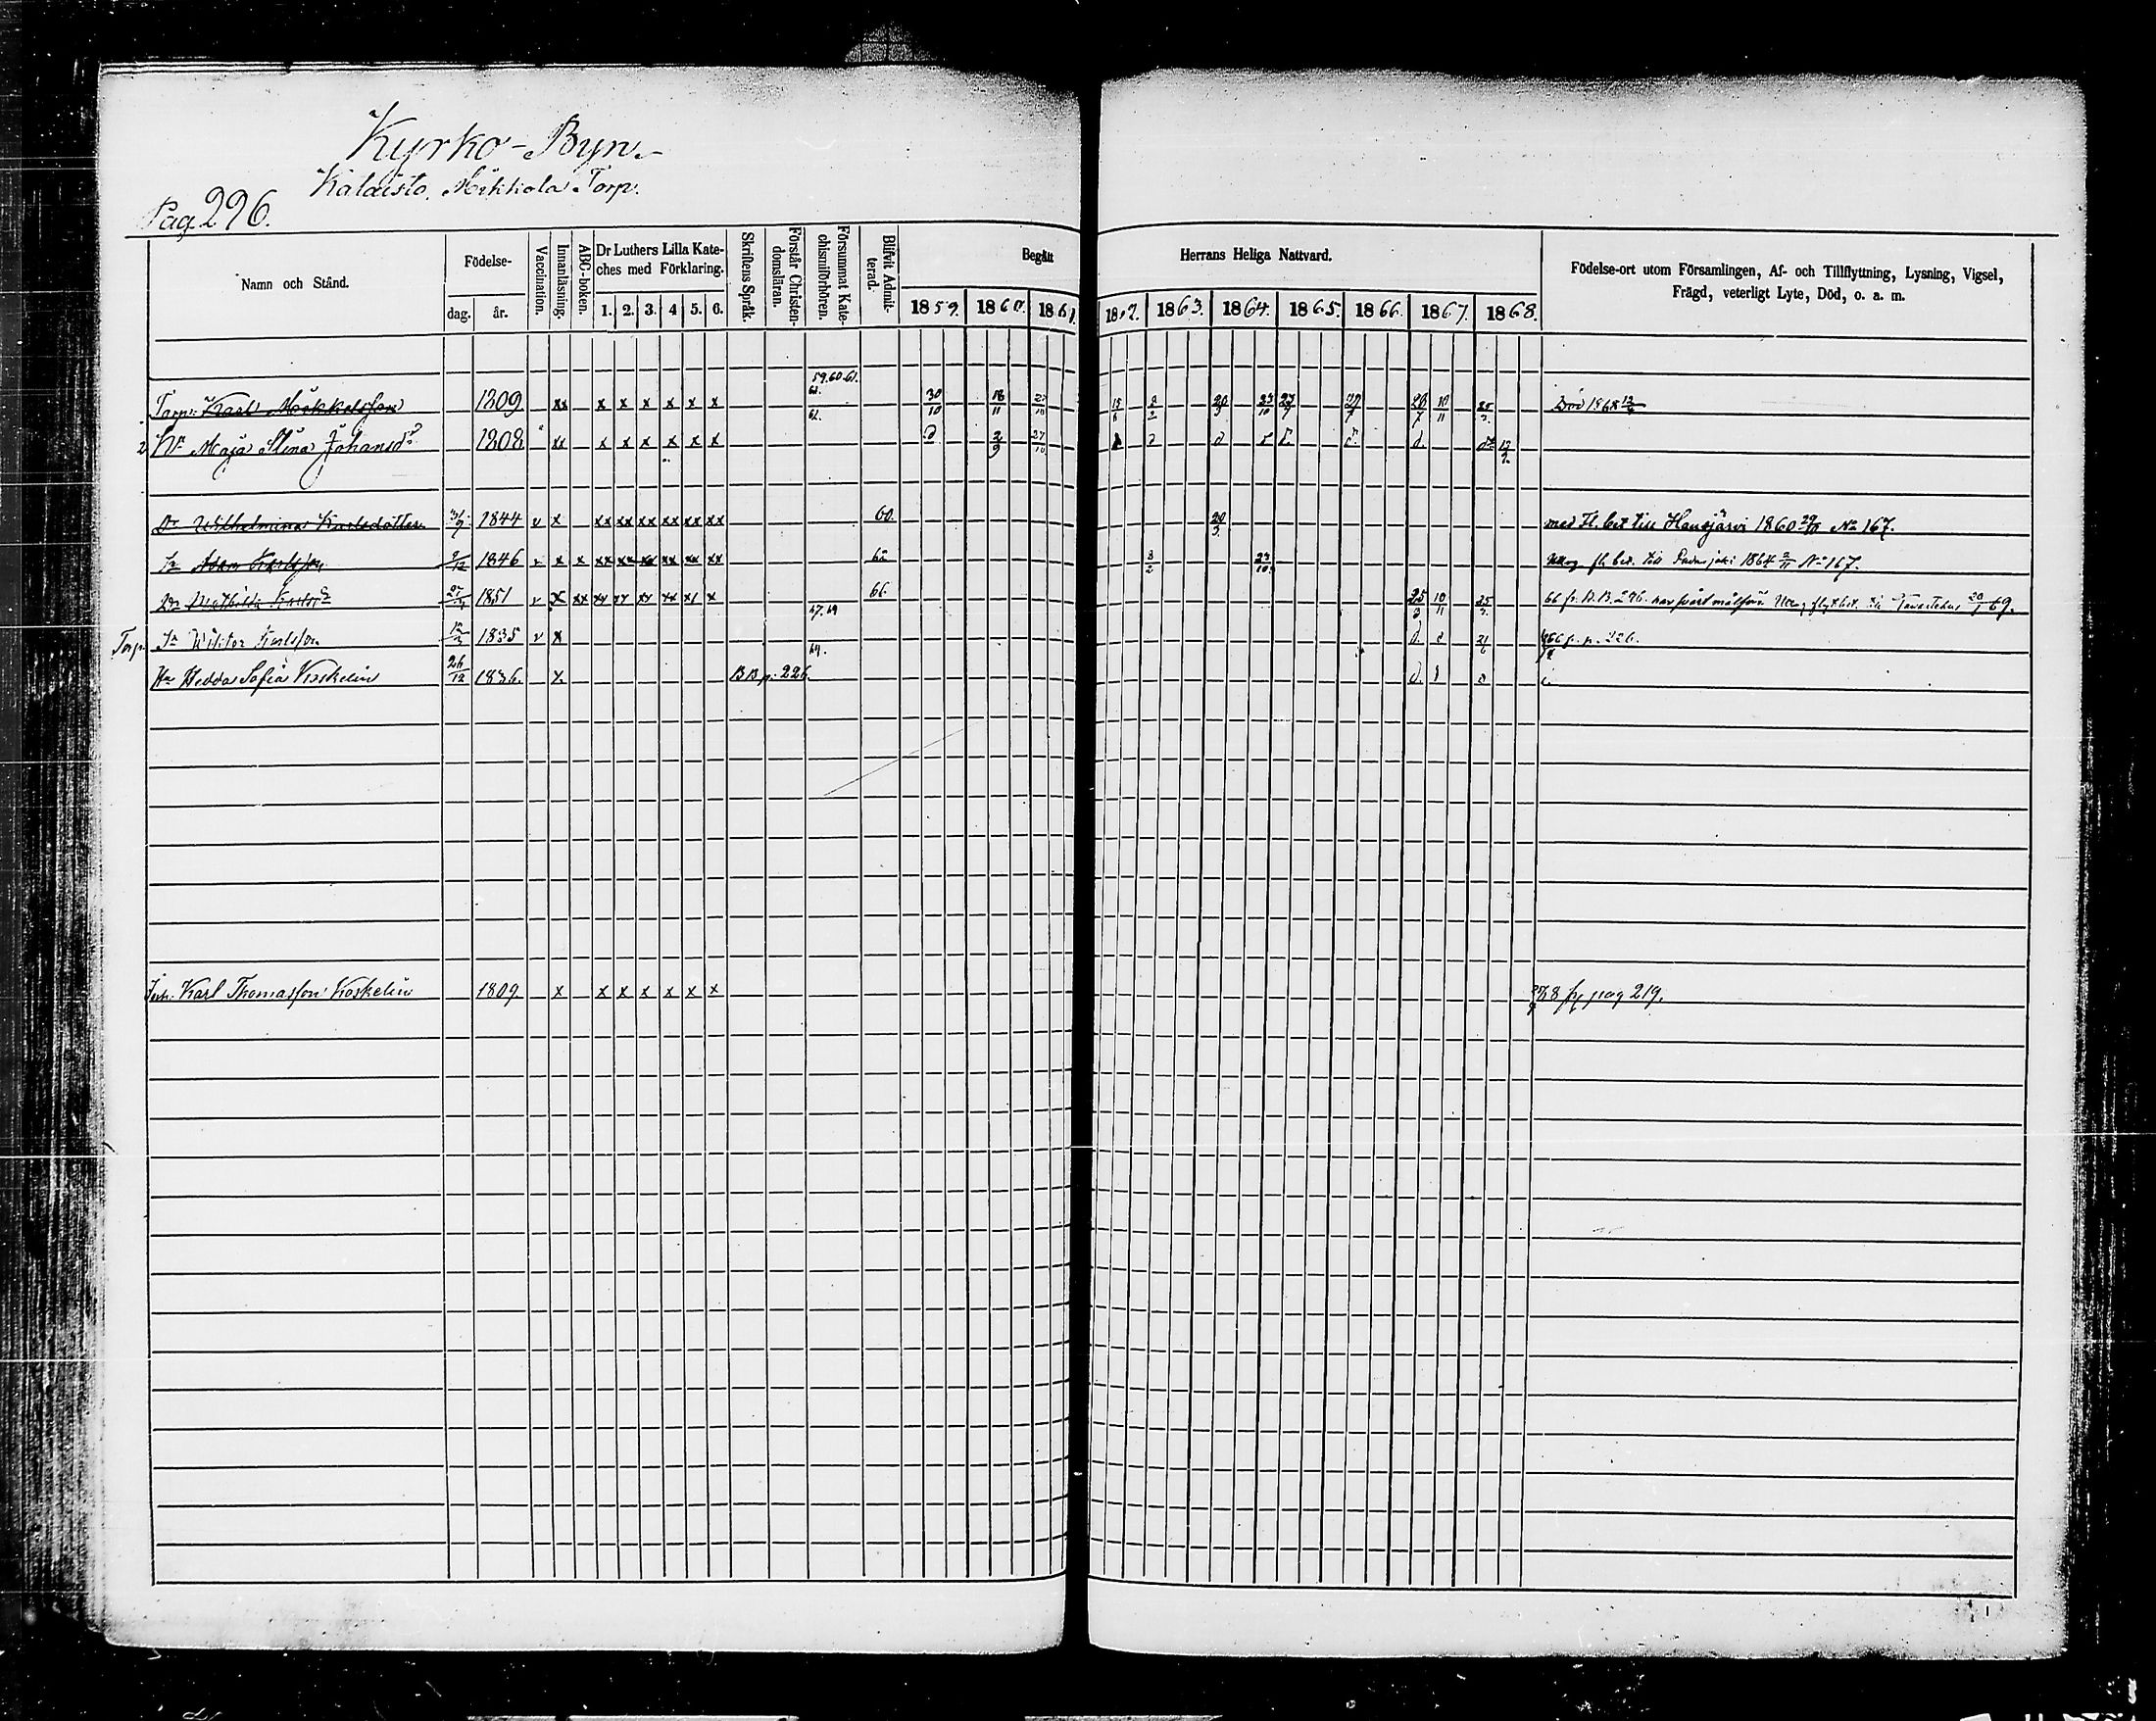 Kyrko-Byn.
Kalaisto. Mikkola Torp.
Pag. 296.
Namn och Stånd.
Födelse-
dag.
år.
Vaccination.
Innanläsning.
ABC-boken.
Dr Luthers Lilla Kate-
ches med Förklaring.
1. 2. 3. 4 5. 6.
Skriftens Språk.
Förstår Christen-
domsläran.
Försummat Kate-
chismiförhören.
Blifvit Admit-
terad.
Begått
Herrans Heliga Nattvard.
1859. 1860. 1861. 1862. 1863. 1864. 1865. 1866. 1867. 1868.
Födelse-ort utom Församlingen, Af- och Tillflyttning, Lysning, Vigsel,
Frägd, veterligt Lyte, Död, o. a. m.
59.60.61.
Torp. Karl Mikkelsson 1809 xx x x x x x x 30/10 18/11 Död 1868
2 Hu Maja Stina Johansdr 1808 xx x x x x x x d 2/9 27/10
Dr Wilhelmina Karlsdotter 31/7 1844 v x xx xx xx xx xx xx 60. 20/3 med Fl. bet till Hausjärvi 1860 No 167.
Sn Adam Karlsson 1846 v x x xx xx xx xx xx xx 62 3/2 23/10 fl. bet. till Padasjoki 1864 2/11 No 167.
Dr Mathilda Karlsdr 1851 v x xx xx xx xx xx x1 x 67.69 66. 25/3 10/11 66 fr. B.B. 296. 20/1 69.
Torp. Sn Wiktor Karlsson 1835 v x 69. d. d p. 226.
Hu Hedda Sofia Koskelin 26/12 1836. x BB p. 226. d.
Inh. Karl Thomasson Koskelin 1809 x x x x x x x 68 fr pag 219.